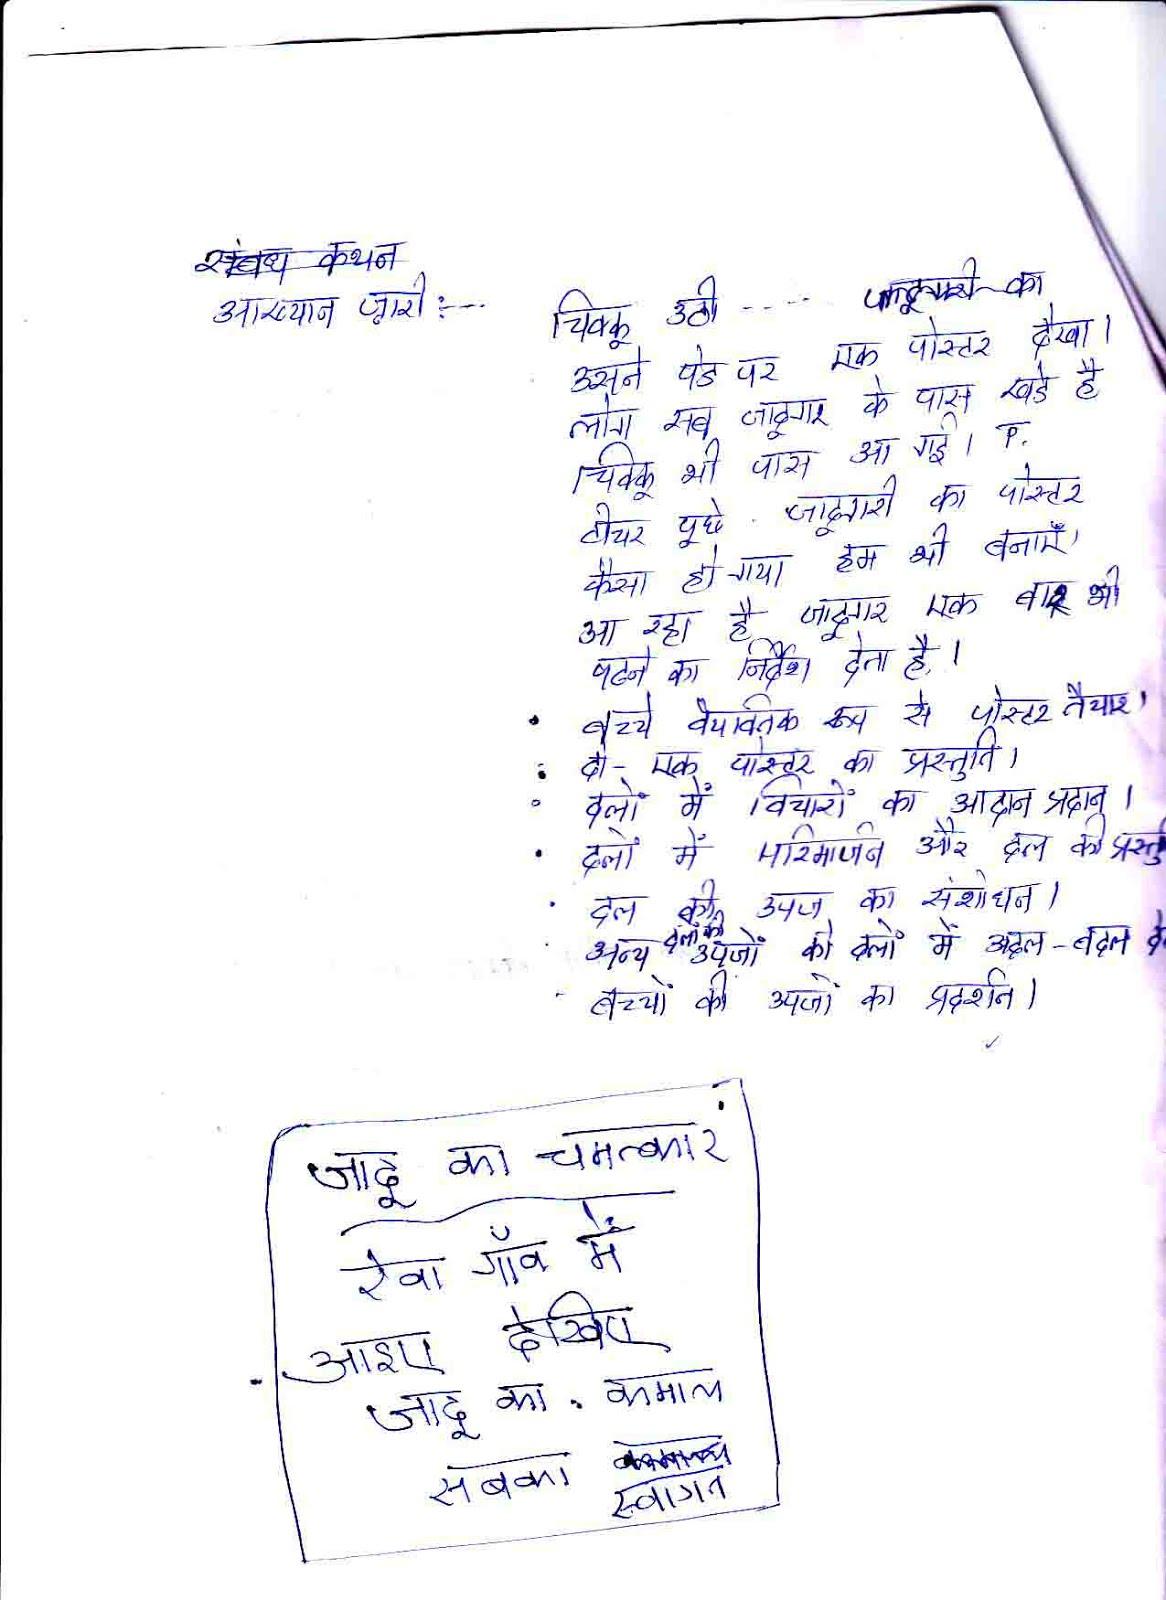 संबंध कथन
आख्यान जारी :---
चिक्कू उठी ---- जादूगरी का
उसने पेड पर एक पोस्टर देखा।
लोग सब जादूगार के पास खडे है
चिक्कू भी पास आ गई। P.
टीचर पूछे . जादूगारी का पोस्टर
कैसा हो गया हम भी बनाएँ।
आ रहा है जादूगार एक बार भी
पढने का निर्देश देता है।
• बच्चे वैयक्तिक रूप से पोस्टर तैयार।
: दो- एक पोस्टर का प्रस्तुति।
• दलों में विचारों का आदान प्रदान।
• दलों में परिमार्जन और दल की
• दल की उपज का संशोधन।
अन्य दलों की उपजों को दलों में अदल-बदल
- बच्चों की उपजों का प्रदर्शन।
जादू का चमत्कार
रेवा गाँव में
आइए देखिए
जादू का . कमाल
सबका
स्वागत